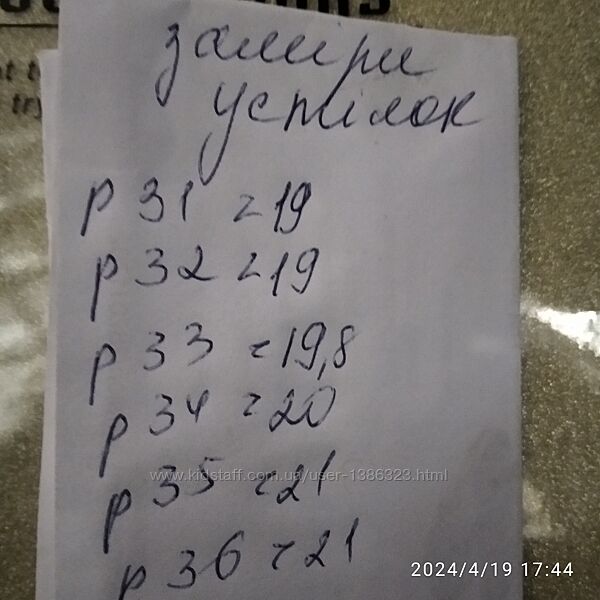 заміри
устілок
р 31 = 19
р 32 = 19
р 33 = 19,8
р 34 = 20
www.kidstaff.com.ua/user-1386323.html
р 35 = 21
р 36 = 21
2024/4/19 17:44